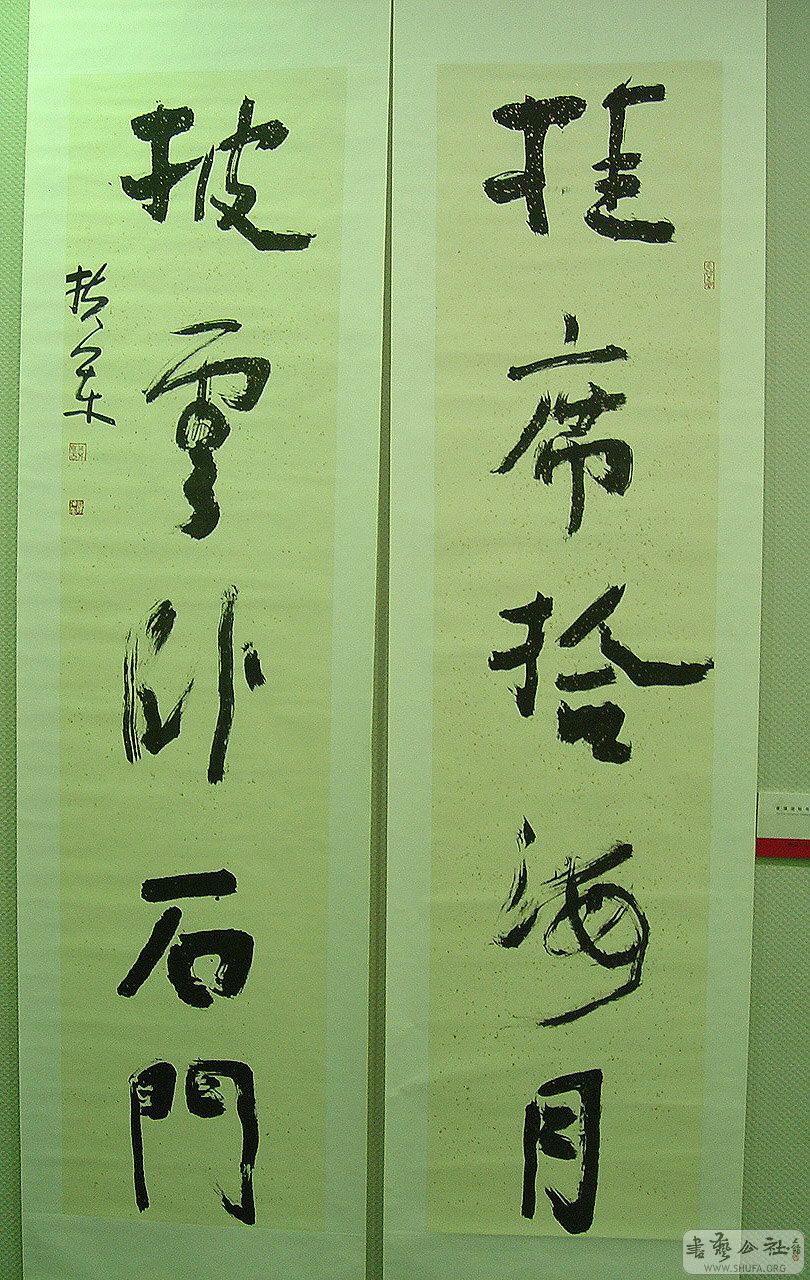 挂席拾海月
披雲卧石門
書藝公社
WWW.SHUFA.ORG